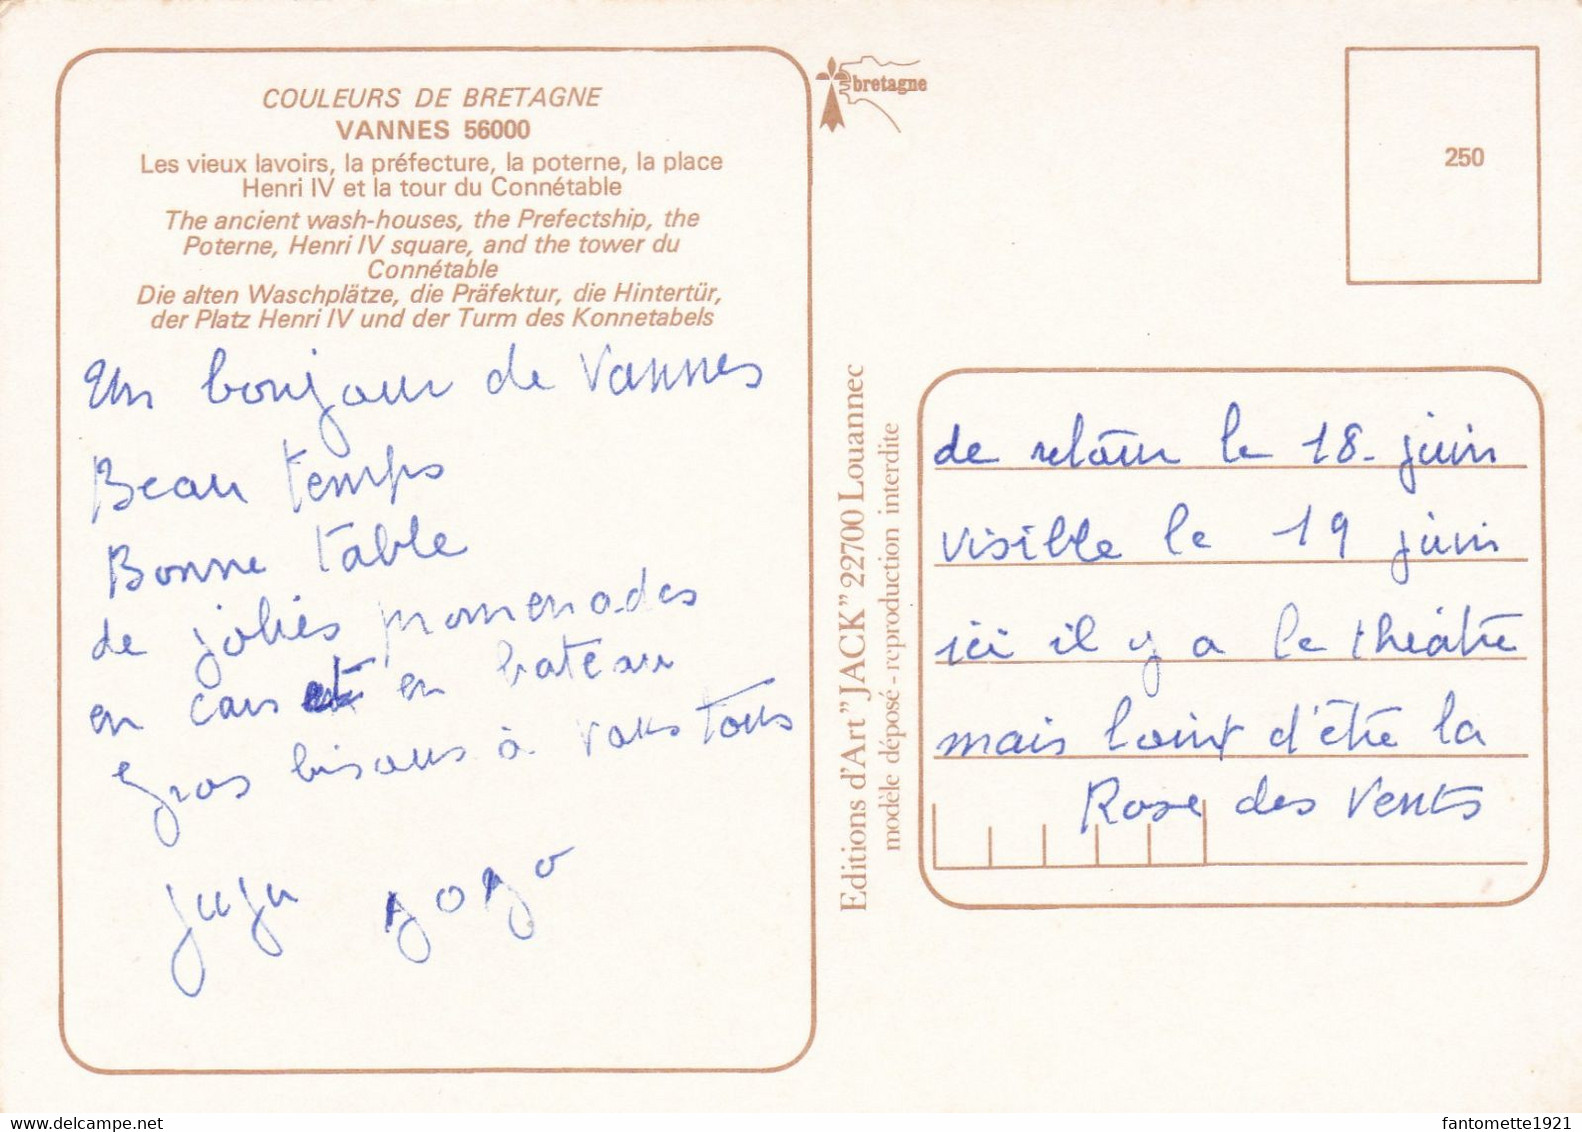 COULEURS DE BRETAGNE
VANNES 56000
Les vieux lavoirs, la préfecture, la poterne, la place
Henri IV et la tour du Connétable
The ancient wash-houses, the Prefectship, the
Poterne, Henri IV square, and the tower du
Connétable
Die alten Waschplätze, die Präfektur, die Hintertür,
der Platz Henri IV und der Turm des Konnetabels
Un bonjour de Vannes
Beau temps
Bonne table
de jolies promenades
en cars et en bateau
Gros bisous à vous tous
juju gogo
bretagne
250
Editions d'Art "JACK" 22700 Louannec
modèle déposé - reproduction interdite
de retour le 18 juin
visible le 19 juin
ici il y a le théâtre
mais loin d'être la
Rose des Vents
fantomette1921